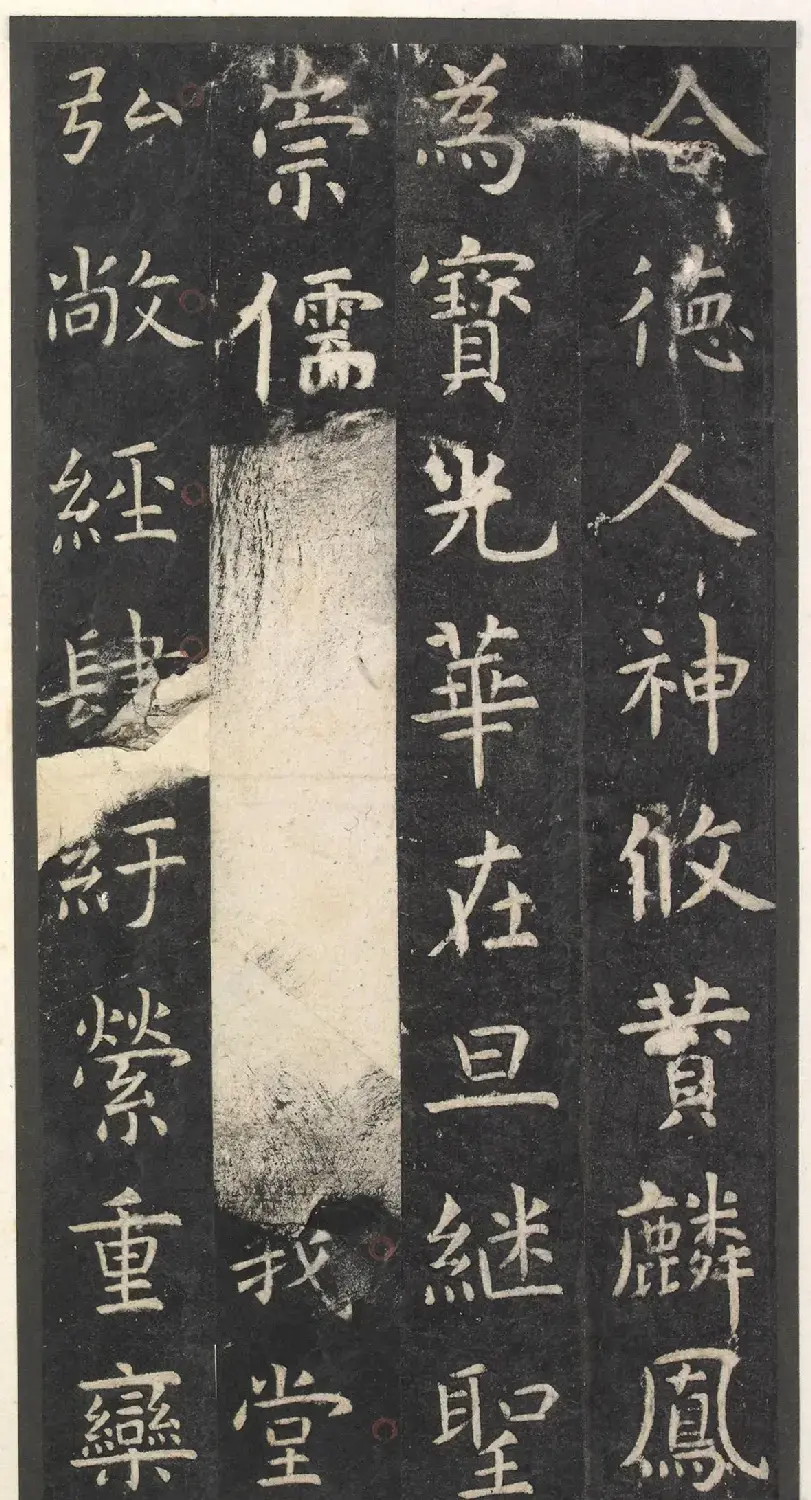 合德人神攸賛麟鳳
為寶光華在旦継聖
崇儒堂
弘敞經肆紆縈重欒